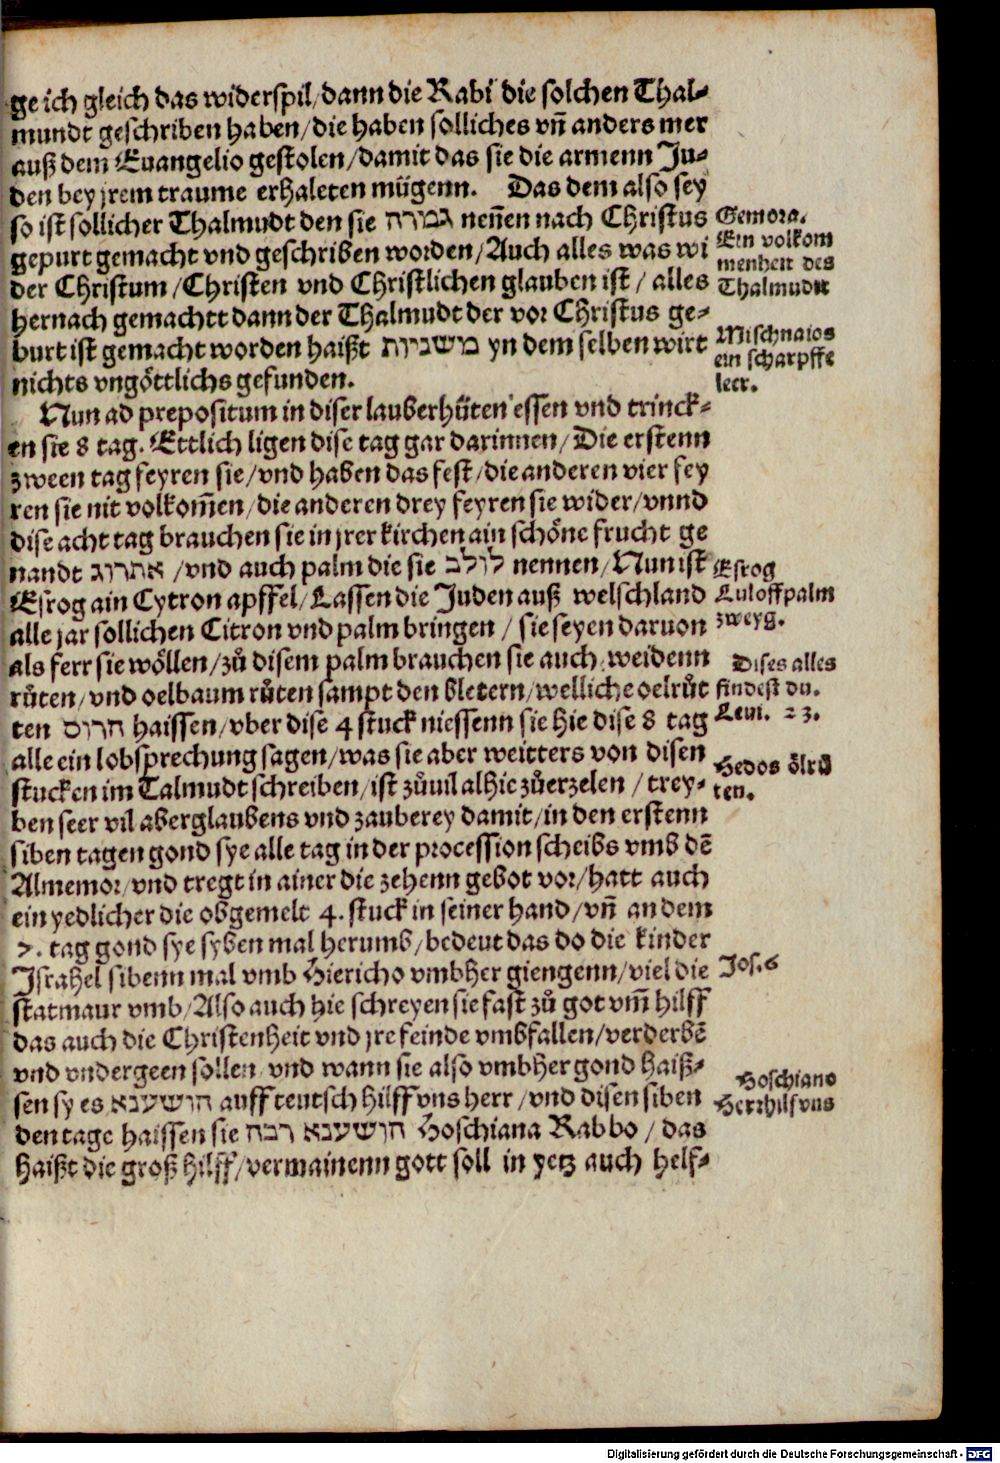 ge ich gleich das widerspil/dann die Rabi die solchen Thal-
mundt geschriben haben/die haben solliches vn̄ anders mer
auß dem Euangelio gestolen/damit das sie die armenn Ju-
den bey jrem traume erhaleten mügenn. Das dem also sey
so ist sollicher Thalmudt den sie גמרה nen̄en nach Christus
gepurt gemacht vnd geschriben worden/Auch alles was wi
der Christum/Christen vnd Christlichen glauben ist/ alles
hernach gemachtt dann der Thalmudt der vor Christus ge-
burt ist gemacht worden haißt משניות yn dem selben wirt
nichts vngöttlichs gefunden.
Nun ad prepositum in diser lauberhüten essen vnd trinck-
en sie 8 tag. Ettlich ligen dise tag gar darinnen/Die erstenn
zween tag feyren sie/vnd haben das fest/die anderen vier fey
ren sie nit volkom̄en/die anderen drey feyren sie wider/vnnd
dise acht tag brauchen sie in jrer kirchen ain schöne frucht ge
nandt אתרוג /vnd auch palm die sie לולב nennen/Nun ist
Esrog ain Cytron apffel/Lassen die Juden auß welschland
alle jar sollichen Citron vnd palm bringen / sie seyen daruon
als ferr sie wöllen/zů disem palm brauchen sie auch weidenn
růten/vnd oelbaum růten sampt den bletern/welliche oelrůt
ten חדוס haissen/vber dise 4 stuck niessenn sie hie dise 8 tag
alle ein lobsprechung sagen/was sie aber weitters von disen
stucken im Talmudt schreiben/ist zůuil alhie zůerzelen / trey-
ben seer vil aberglaubens vnd zauberey damit/in den erstenn
siben tagen gond sye alle tag in der procession scheibs vmb dē
Almemor/vnd tregt in ainer die zehenn gebot vor/hatt auch
ein yedlicher die obgemelt 4. stuck in seiner hand/vn̄ an dem
7. tag gond sye syben mal herumb/bedeut das do die kinder
Israhel sibenn mal vmb Hiericho vmbher giengenn/viel die
statmaur vmb/Also auch hie schreyen sie fast zů got vm̄ hilff
das auch die Christenheit vnd jre feinde vmbfallen/verderbē
vnd vndergeen sollen vnd wann sie also vmbher gond haiß-
sen sy es הושענא auff teutsch hilff vns herr/vnd disen siben
den tage haissen sie הושענא רבה Hoschiana Rabbo / das
haißt die groß hilff/vermainenn gott soll in yetz auch helf-
Gemora.
Ein volkom
menheit des
Thalmudtt
Mischnaios
ein scharpffe
leer.
Esrog
Luloffpalm
zweyg.
Dises alles
findest du.
Leui. 23.
Hedos ölrů
ten.
Jos. 6
Hoschiano
Herr hilf vns
Digitalisierung gefördert durch die Deutsche Forschungsgemeinschaft - DFG